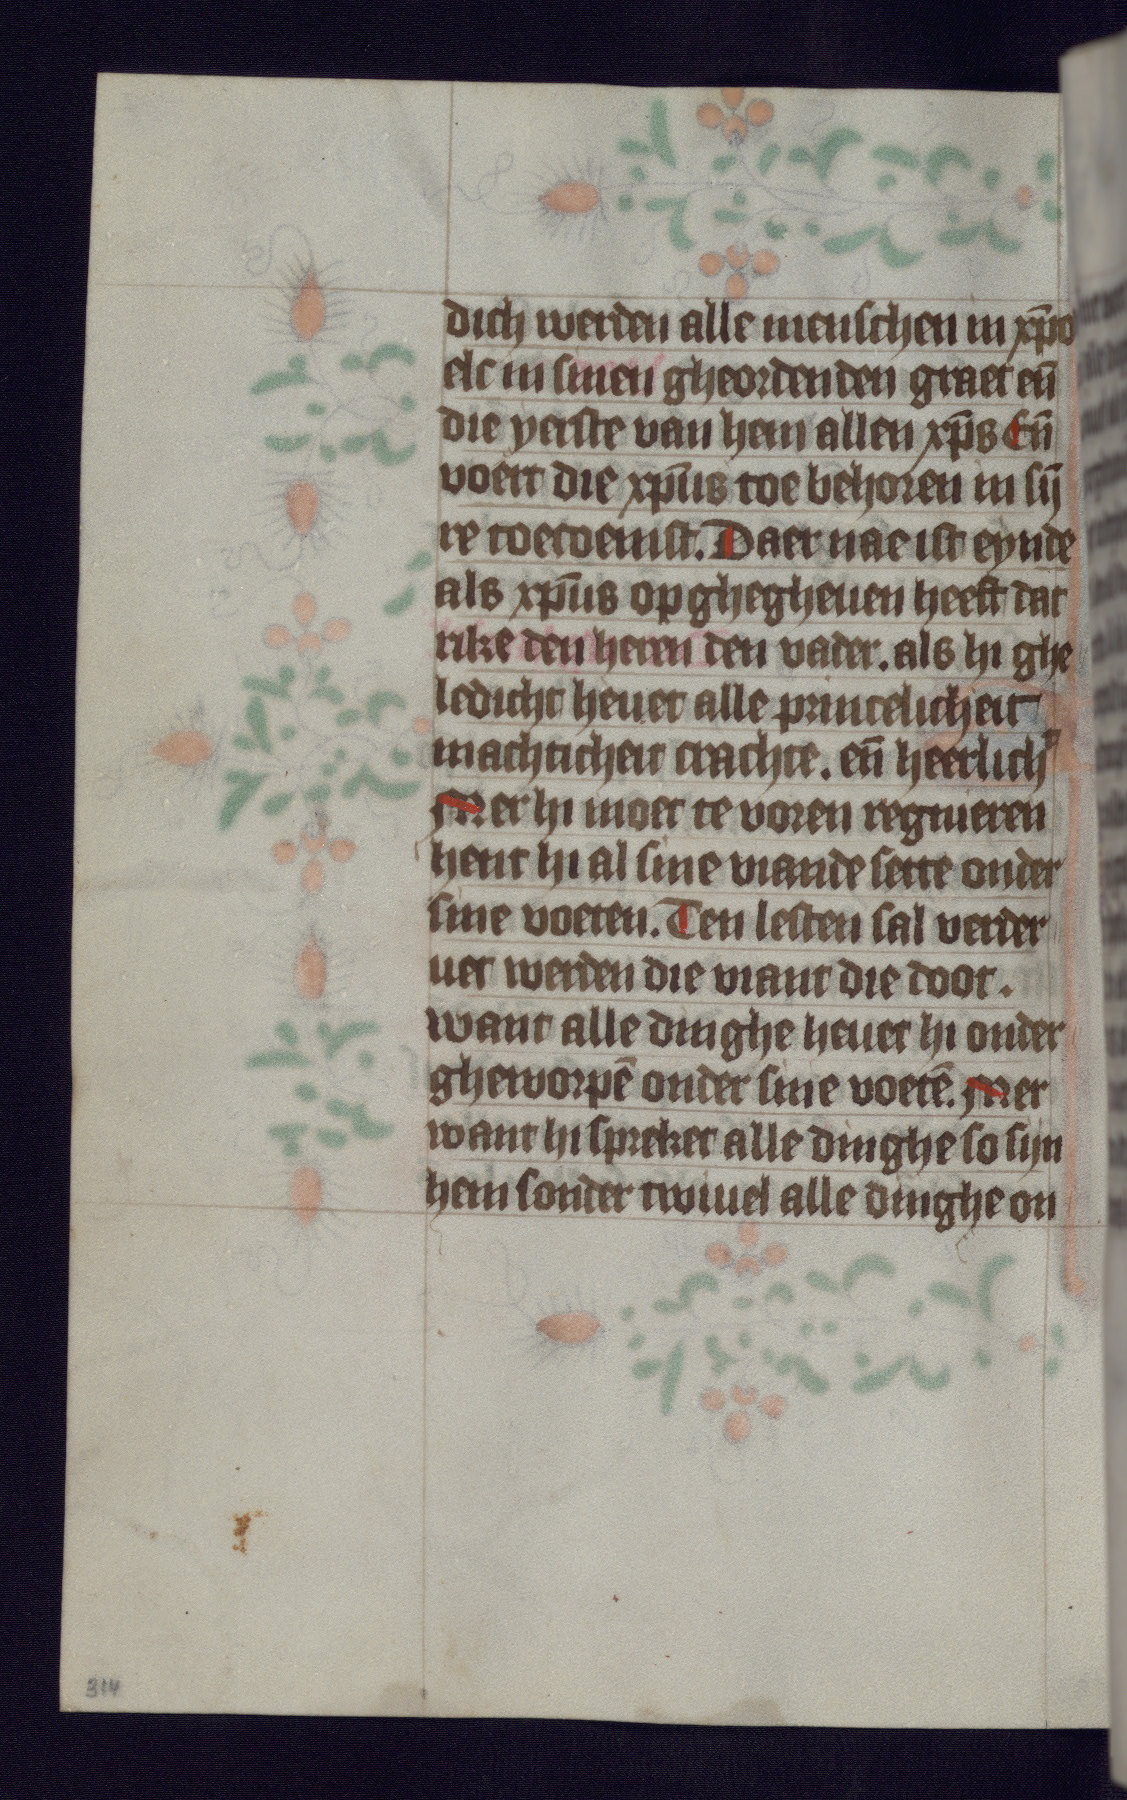 dich werden alle menschen in xp̄o
elc in sinen gheordenden graet en̄
die yerste van hem allen xp̄s En̄
voert die xp̄us toe behoren in sij̄
re toecoemst. Daer nae ist eynde
als xp̄us op ghegheuen heeft dat
rike den heren den vader. als hi ghe
ledicht heuet alle princelicheit
machticheit crachte. en̄ heerlich
Mer hi moet te voren regnieren
hent hi al sine viande sette onder
sine voeten. Ten lesten sal verder
uet werden die viant die doot.
want alle dinghe heuet hi onder
gheworpē onder sine voetē. Mer
want hi spreket alle dinghe so sijn
hem sonder twiuel alle dinghe on
314